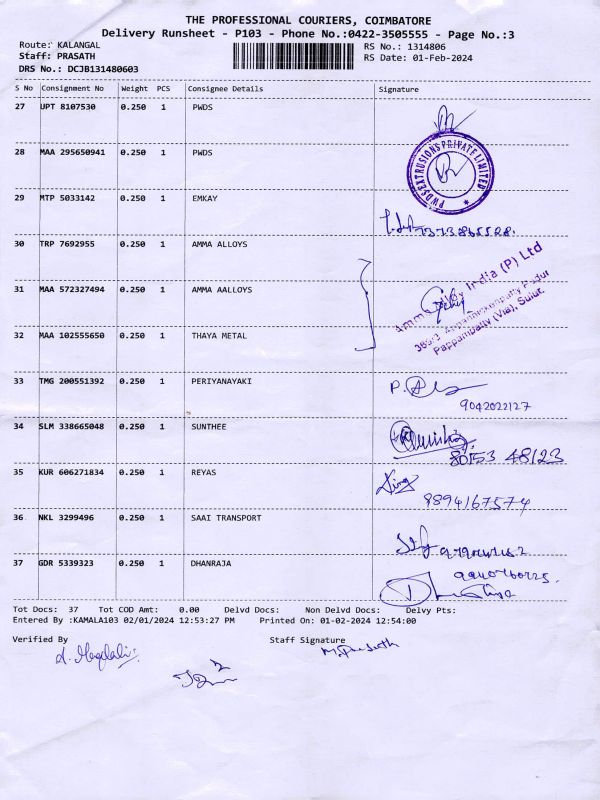 THE PROFESSIONAL COURIERS, COIMBATORE
Delivery Runsheet - P103 - Phone No.:0422-3505555 - Page No.:3
Route: KALANGAL RS No.: 1314806
Staff: PRASATH RS Date: 01-Feb-2024
DRS No.: DCJB131480603
S No Consignment No Weight PCS Consignee Details Signature
27 UPT 8107530 0.250 1 PWDS
28 MAA 295650941 0.250 1 PWDS
PWDS EXTRUSIONS PRIVATE LIMITED
29 MTP 5033142 0.250 1 EMKAY
30 TRP 7692955 0.250 1 AMMA ALLOYS
31 MAA 572327494 0.250 1 AMMA AALLOYS
India (P) Ltd
Pappampatty (Via), Sulur.
32 MAA 102555650 0.250 1 THAYA METAL
33 TMG 200551392 0.250 1 PERIYANAYAKI
9042022127
34 SLM 338665048 0.250 1 SUNTHEE
80153 48123
35 KUR 606271834 0.250 1 REYAS
9894167574
36 NKL 3299496 0.250 1 SAAI TRANSPORT
37 GDR 5339323 0.250 1 DHANRAJA
Tot Docs: 37 Tot COD Amt: 0.00 Delvd Docs: Non Delvd Docs: Delvy Pts:
Entered By :KAMALA103 02/01/2024 12:53:27 PM Printed On: 01-02-2024 12:54:00
Verified By Staff Signature
M. Prasath